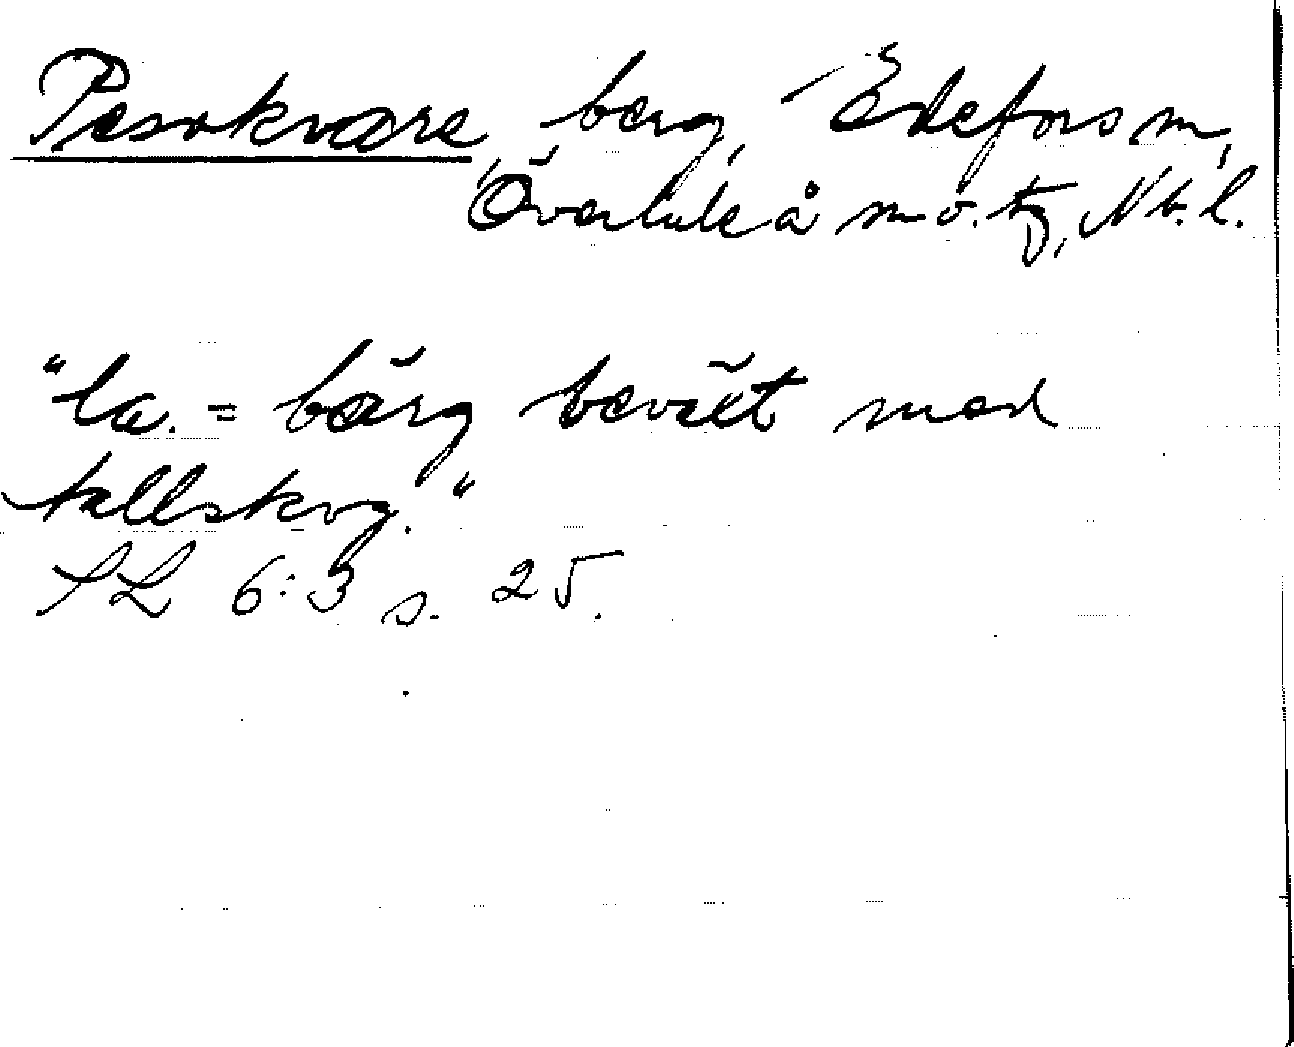 Pesokvare, berg, Edefors sn,
Överluleå m.o. tg, Nb. l.
"la. = bärg beväxt med
tallskog."
SL 6:3 s. 25.